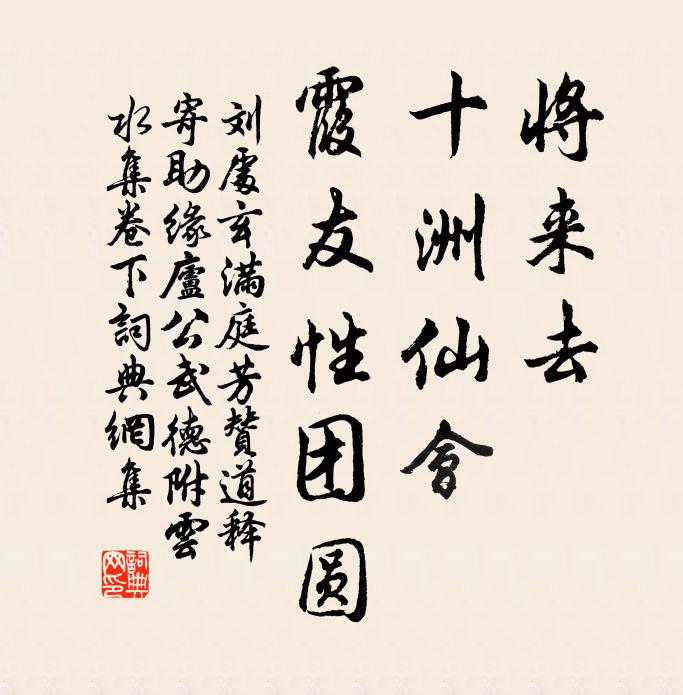 将来去
十洲仙會
霞友性团圆
刘處玄满庭芳赞道释
寄助缘廬公武德附雲
水集卷下詞典網集
詞典網印